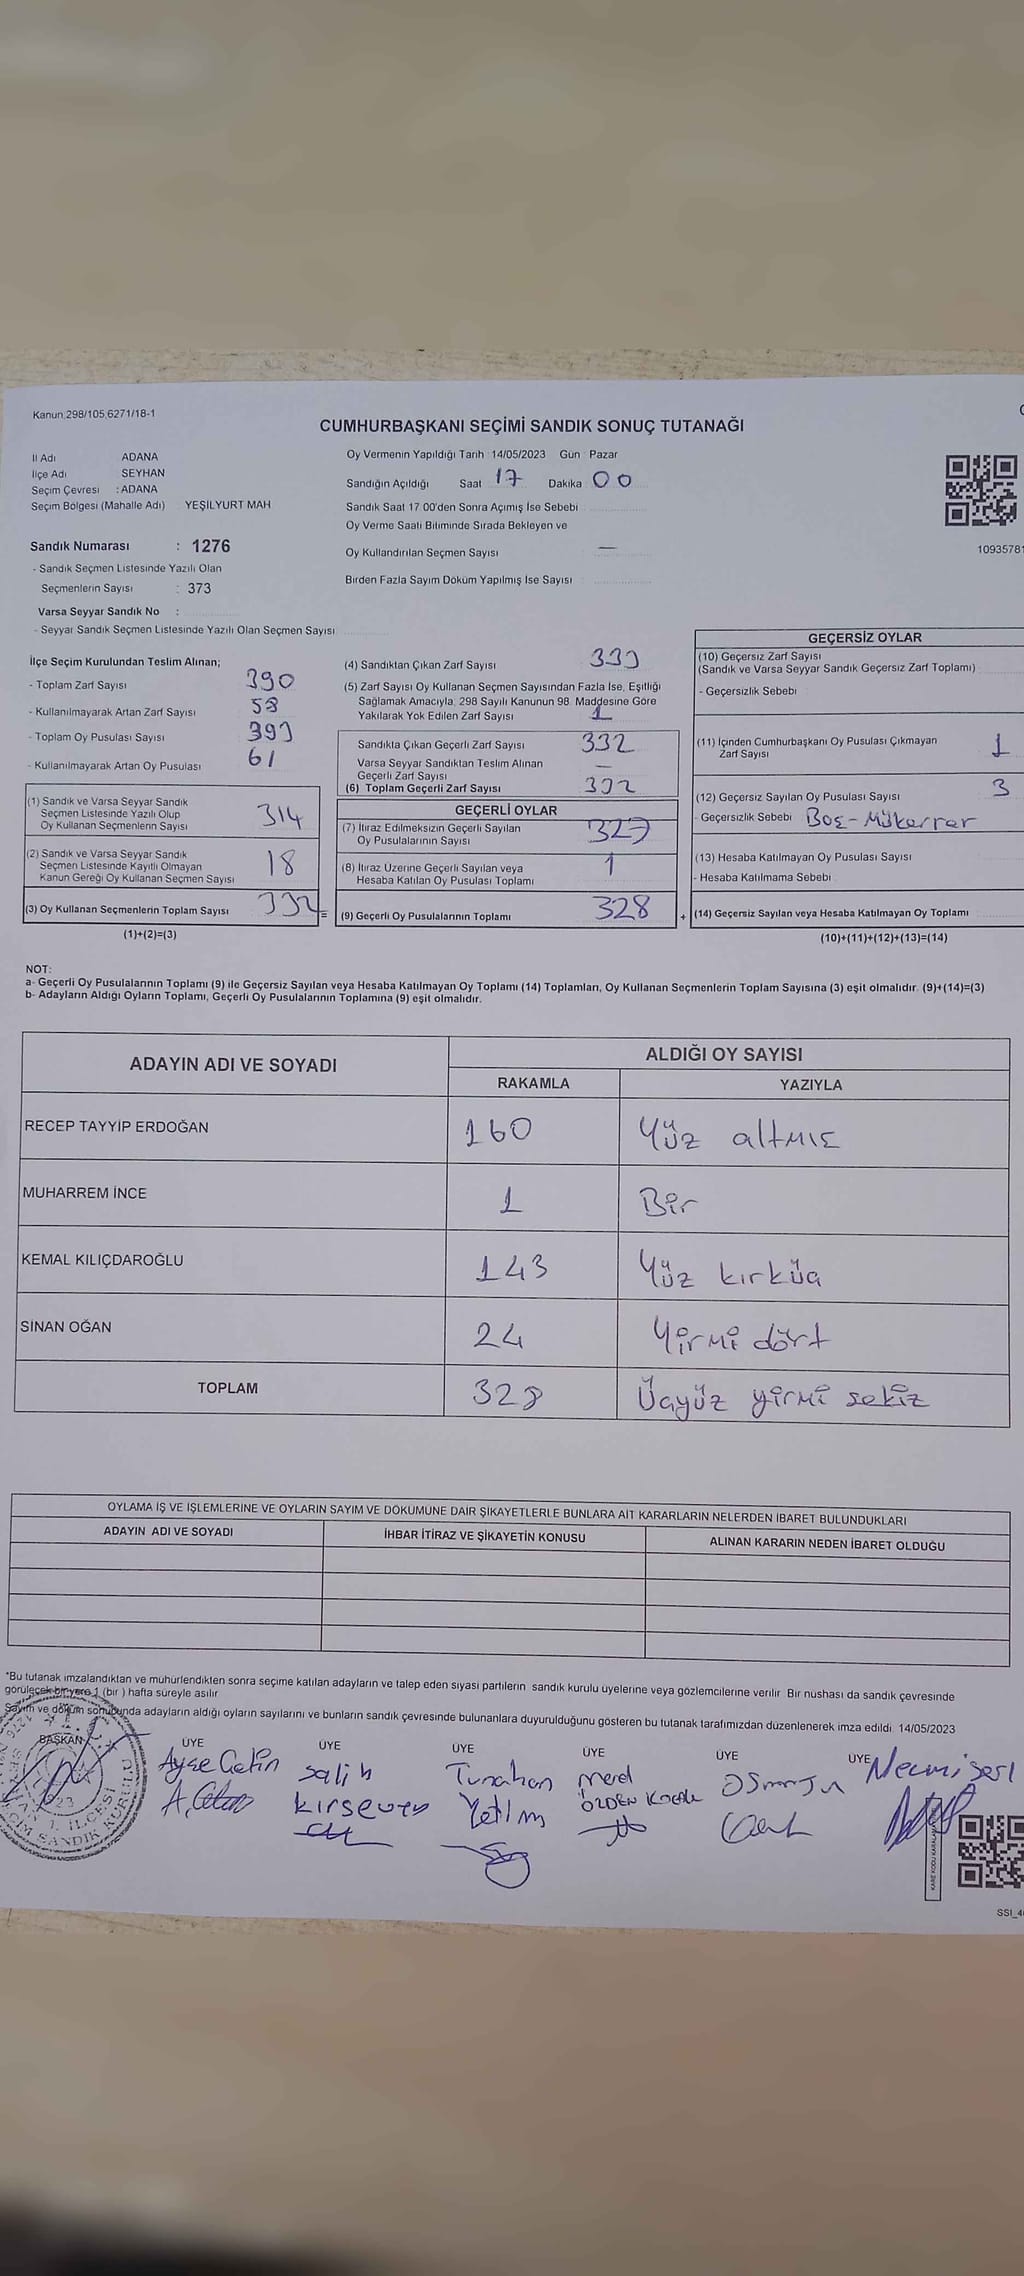 Kanun 298/105,6271/18-1
CUMHURBAŞKANI SEÇİMİ SANDIK SONUÇ TUTANAĞI
İl Adı ADANA
İlçe Adı SEYHAN
Seçim Çevresi : ADANA
Seçim Bölgesi (Mahalle Adı) YEŞİLYURT MAH
Sandık Numarası : 1276
- Sandık Seçmen Listesinde Yazılı Olan
Seçmenlerin Sayısı : 373
Varsa Seyyar Sandık No :
- Seyyar Sandık Seçmen Listesinde Yazılı Olan Seçmen Sayısı
Oy Vermenin Yapıldığı Tarih 14/05/2023 Gün Pazar
Sandığın Açıldığı Saat 17 Dakika 00
Sandık Saat 17 00'den Sonra Açımış İse Sebebi
Oy Verme Saati Bitiminde Sırada Bekleyen ve
Oy Kullandırılan Seçmen Sayısı —
Birden Fazla Sayım Döküm Yapılmış İse Sayısı
1093578
İlçe Seçim Kurulundan Teslim Alınan;
- Toplam Zarf Sayısı 390
- Kullanılmayarak Artan Zarf Sayısı 58
- Toplam Oy Pusulası Sayısı 393
- Kullanılmayarak Artan Oy Pusulası 61
(1) Sandık ve Varsa Seyyar Sandık
Seçmen Listesinde Yazılı Olup
Oy Kullanan Seçmenlerin Sayısı 314
(2) Sandık ve Varsa Seyyar Sandık
Seçmen Listesinde Kayıtlı Olmayan
Kanun Gereği Oy Kullanan Seçmen Sayısı 18
(3) Oy Kullanan Seçmenlerin Toplam Sayısı 332
(1)+(2)=(3)
(4) Sandıktan Çıkan Zarf Sayısı 333
(5) Zarf Sayısı Oy Kullanan Seçmen Sayısından Fazla İse, Eşitliği
Sağlamak Amacıyla, 298 Sayılı Kanunun 98. Maddesine Göre
Yakılarak Yok Edilen Zarf Sayısı 1
Sandıkta Çıkan Geçerli Zarf Sayısı 332
Varsa Seyyar Sandıktan Teslim Alınan
Geçerli Zarf Sayısı —
(6) Toplam Geçerli Zarf Sayısı 332
GEÇERLİ OYLAR
(7) İtiraz Edilmeksizin Geçerli Sayılan
Oy Pusulalarının Sayısı 327
(8) İtiraz Üzerine Geçerli Sayılan veya
Hesaba Katılan Oy Pusulası Toplamı 1
= (9) Geçerli Oy Pusulalarının Toplamı 328
GEÇERSİZ OYLAR
(10) Geçersiz Zarf Sayısı
(Sandık ve Varsa Seyyar Sandık Geçersiz Zarf Toplamı)
- Geçersizlik Sebebi
(11) İçinden Cumhurbaşkanı Oy Pusulası Çıkmayan
Zarf Sayısı 1
(12) Geçersiz Sayılan Oy Pusulası Sayısı 3
- Geçersizlik Sebebi Boş-Mükerrer
(13) Hesaba Katılmayan Oy Pusulası Sayısı
- Hesaba Katılmama Sebebi
+ (14) Geçersiz Sayılan veya Hesaba Katılmayan Oy Toplamı
(10)+(11)+(12)+(13)=(14)
NOT:
a- Geçerli Oy Pusulalarının Toplamı (9) ile Geçersiz Sayılan veya Hesaba Katılmayan Oy Toplamı (14) Toplamları, Oy Kullanan Seçmenlerin Toplam Sayısına (3) eşit olmalıdır. (9)+(14)=(3)
b- Adayların Aldığı Oyların Toplamı, Geçerli Oy Pusulalarının Toplamına (9) eşit olmalıdır.
ADAYIN ADI VE SOYADI ALDIĞI OY SAYISI
RAKAMLA YAZIYLA
RECEP TAYYİP ERDOĞAN 160 Yüz altmış
MUHARREM İNCE 1 Bir
KEMAL KILIÇDAROĞLU 143 Yüz kırküç
SİNAN OĞAN 24 Yirmi dört
TOPLAM 328 Üçyüz yirmi sekiz
OYLAMA İŞ VE İŞLEMLERİNE VE OYLARIN SAYIM VE DÖKÜMÜNE DAİR ŞİKAYETLERLE BUNLARA AİT KARARLARIN NELERDEN İBARET BULUNDUKLARI
ADAYIN ADI VE SOYADI İHBAR İTİRAZ VE ŞİKAYETİN KONUSU ALINAN KARARIN NEDEN İBARET OLDUĞU
*Bu tutanak imzalandıktan ve mühürlendikten sonra seçime katılan adayların ve talep eden siyasi partilerin sandık kurulu üyelerine veya gözlemcilerine verilir Bir nüshası da sandık çevresinde
görülecek bir yere 1 (bir ) hafta süreyle asılır
Sayım ve döküm sonucunda adayların aldığı oyların sayılarını ve bunların sandık çevresinde bulunanlara duyurulduğunu gösteren bu tutanak tarafımızdan düzenlenerek imza edildi. 14/05/2023
BAŞKAN ÜYE ÜYE ÜYE ÜYE ÜYE ÜYE
Ayşe Çetin Salih Tunahan Meral Necmi
Kırseven ÖZDEN
KARE KODU KARALAMAYINIZ